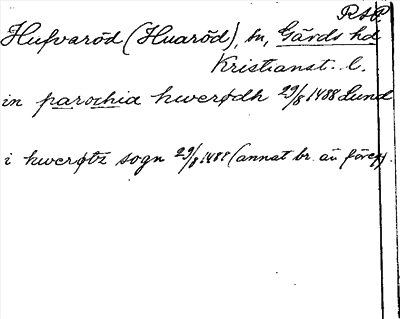 RAP
Hufvaröd (Huaröd), sn, Gärds hd
Kristianst. l.
in parochia hwerødh 29/8 1488 Lund
i hwerøtz sogn 29/8 1488 (annat br. än föreg).